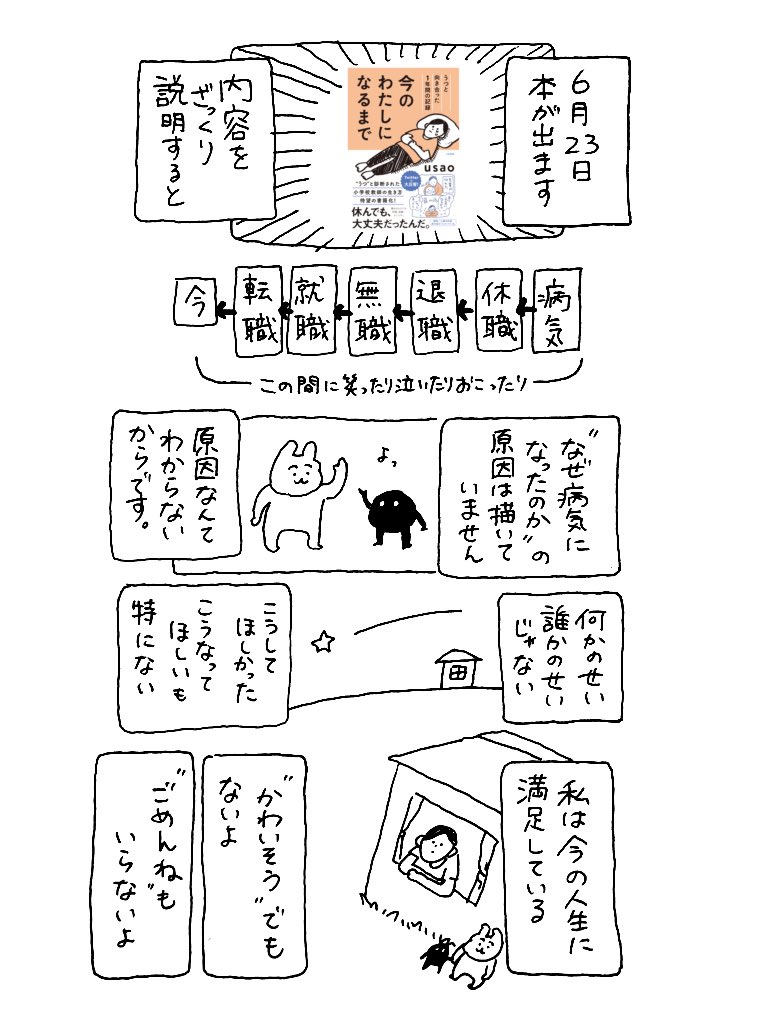 6月23日
本が出ます
うつと
向き合った
1年間の記録
今の
わたしに
なるまで
usao
"うつ"と診断された
小学校教師の生き方
待望の書籍化!
休んでも、
大丈夫だったんだ。
内容を
ざっくり
説明すると
病気
休職
退職
無職
就職
転職
今
この間に笑ったり泣いたりおこったり
"なぜ病気に
なったのか"の
原因は描いて
いません
よっ
原因なんて
わからない
からです。
何かのせい
誰かのせい
じゃない
こうして
ほしかった
こうなって
ほしいも
特にない
私は今の人生に
満足している
"かわいそう"でも
ないよ
"ごめんね"も
いらないよ